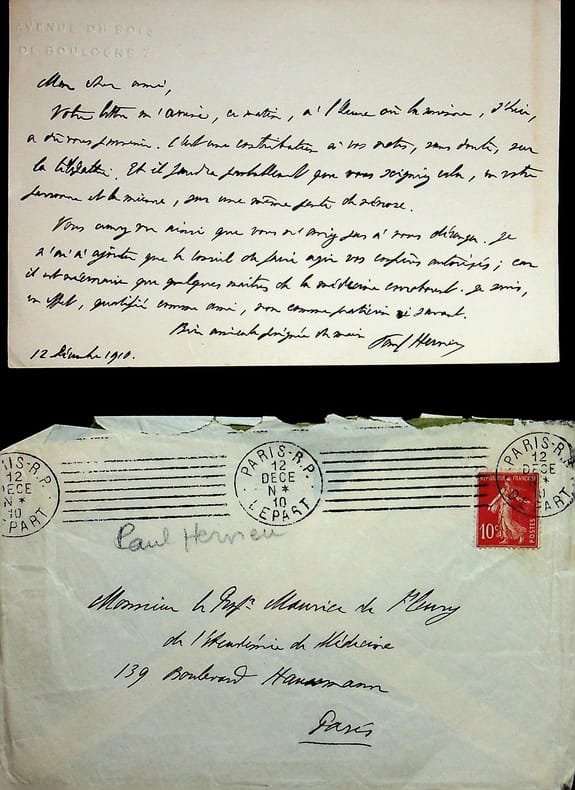 AVENUE DU BOIS
DE BOULOGNE 7
Mon cher ami,
Votre lettre m'arrive, ce matin, à l'heure où la mienne, d'hier,
a dû vous parvenir. C'est une contribution à vos notes, sans doute, sur
la télépathie. Et il faudra probablement que vous soigniez cela, en votre
personne et la mienne, sur une même
Vous aurez vu ainsi que vous n'aviez pas à vous déranger. Je
n'ai à ajouter que le conseil de faire agir vos confrères autorisés ; car
il est nécessaire que quelques maîtres de la médecine corroborent. Je suis,
en effet, qualifié comme ami, non comme praticien ni savant.
Bien amicale poignée de main
Paul Hervieu
12 Décembre 1910.
PARIS-R.P.
12
DECE
N*
10
DEPART
PARIS-R.P.
12
DECE
N*
10
DEPART
PARIS-R.P.
12
DECE
10
DEPART
REPUBLIQUE FRANÇAISE
10c
POSTES
Paul Hervieu
Monsieur le Profr. Maurice de Fleury
de l'Académie de Médecine
139 Boulevard Haussmann
Paris